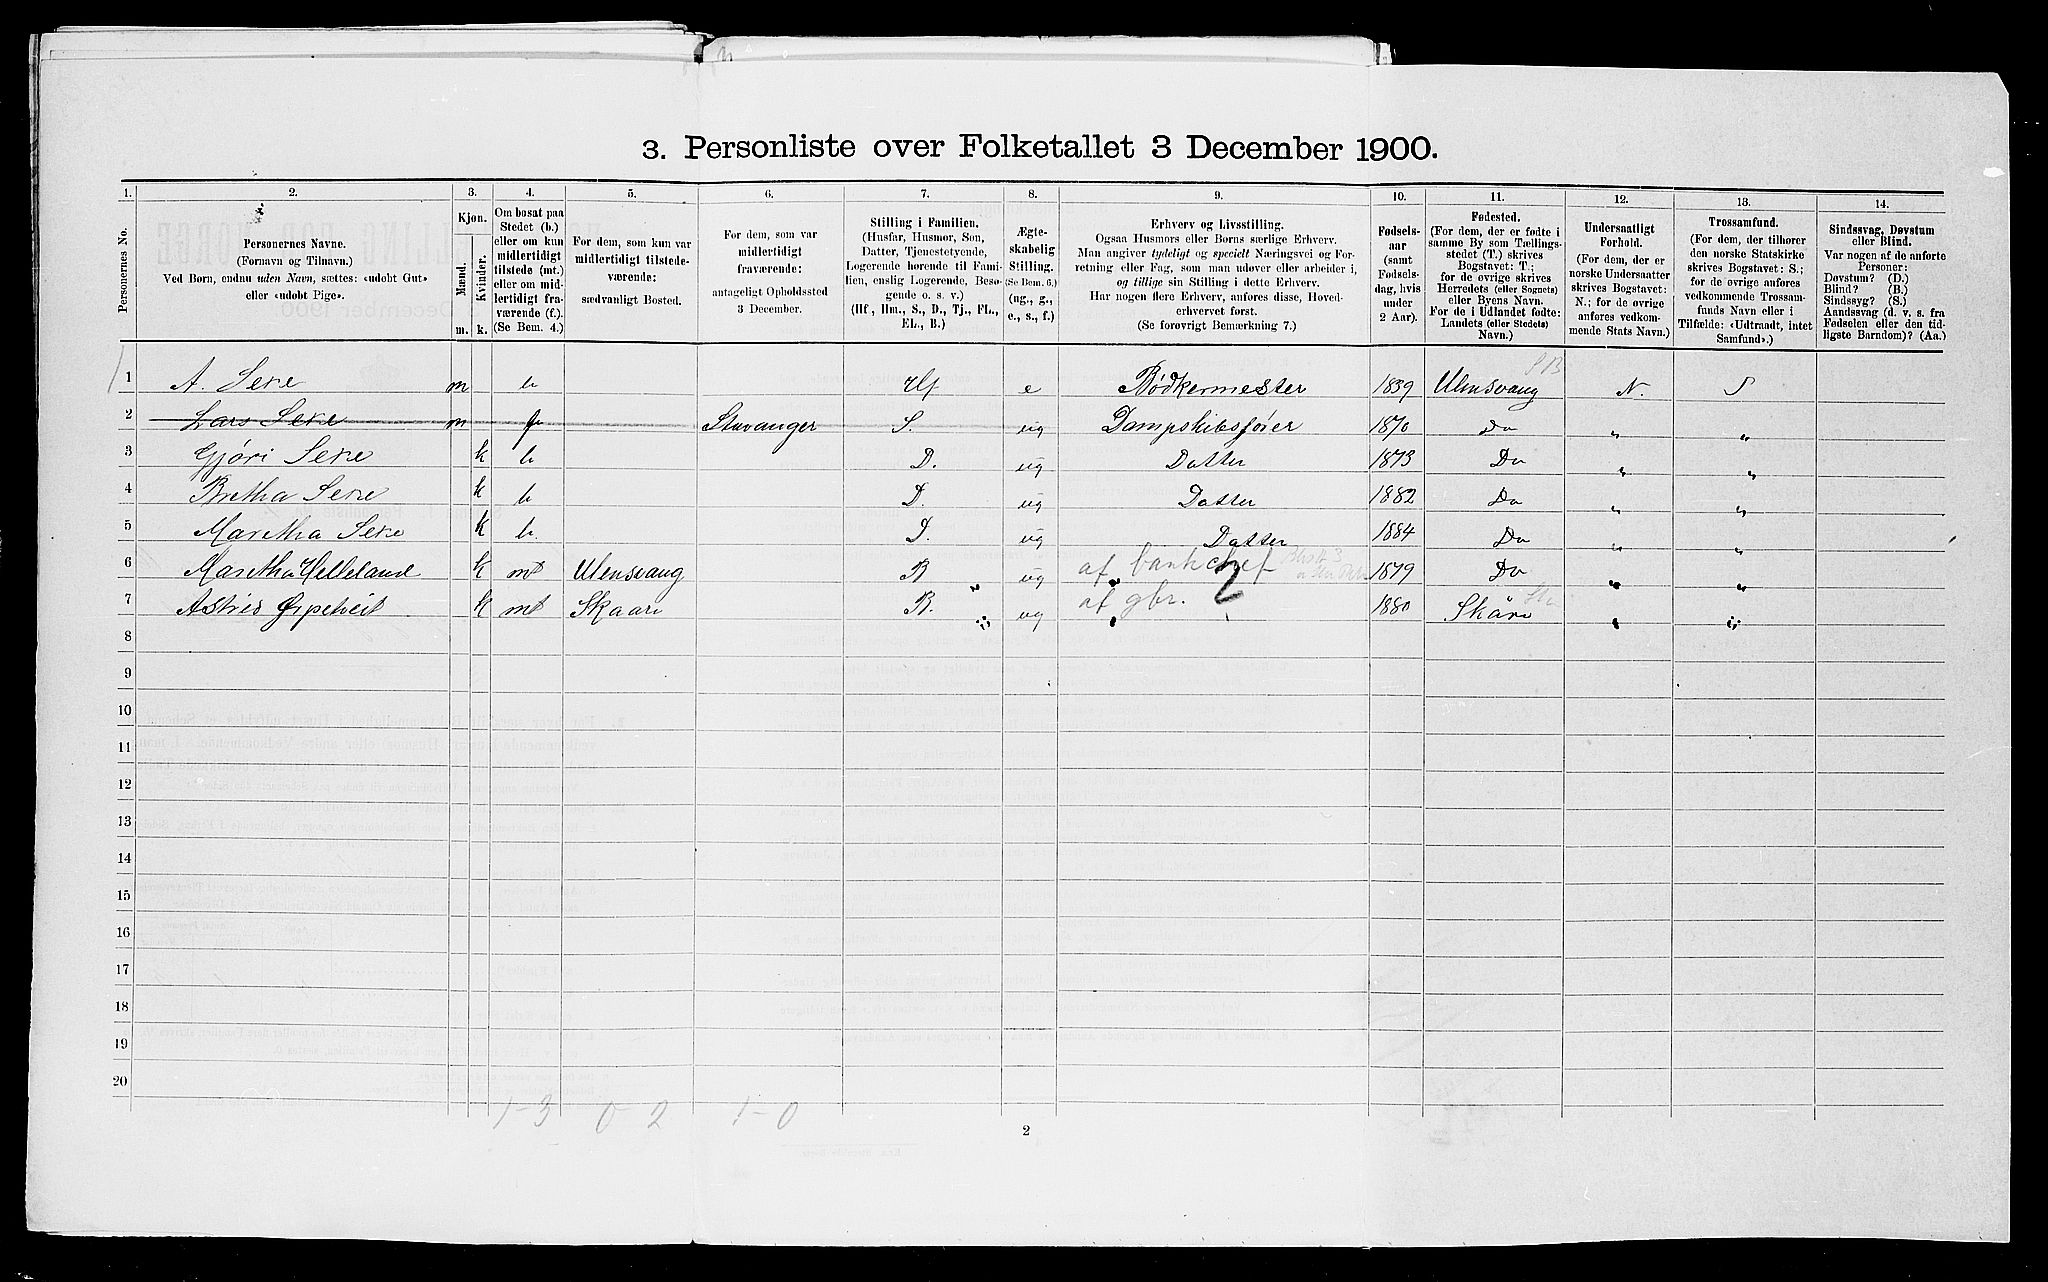 3. Personliste over Folketallet 3 December 1900.
1. 2. 3. 4. 5. 6. 7. 8. 9. 10. 11. 12. 13. 14.
Personernes No.
Personernes Navne.
(Fornavn og Tilnavn.)
Ved Børn, endnu uden Navn, sættes: «udøbt Gut»
eller «udøbt Pige».
Kjøn.
Mænd.
Kvinder.
m. k.
Om bosat paa
Stedet (b.)
eller om kun
midlertidigt
tilstede (mt.)
eller om mid-
lertidigt fra-
værende (f.).
(Se Bem. 4.)
For dem, som kun var
midlertidigt tilstede-
værende:
sædvanligt Bosted.
For dem, som var
midlertidigt
fraværende:
antageligt Opholdssted
3 December.
Stilling i Familien.
(Husfar, Husmor, Søn,
Datter, Tjenestetyende,
Logerende hørende til Fami-
lien, enslig Logerende, Besø-
gende o. s. v.)
(Hf., Hm., S., D., Tj., FL.,
EL., B.)
Ægte-
skabelig
Stilling.
(Se Bem. 6.)
(ug., g.,
e., s., f.)
Erhverv og Livsstilling.
Ogsaa Husmors eller Børns særlige Erhverv.
Man angiver tydeligt og specielt Næringsvei og For-
retning eller Fag, som man udøver eller arbeider i,
og tillige sin Stilling i dette Erhverv.
Har nogen flere Erhverv, anføres disse, Hoved-
erhvervet først.
(Se forøvrigt Bemærkning 7.)
Fødsels-
aar
(samt
Fødsels-
dag, hvis
under
2 Aar).
Fødested.
(For dem, der er fødte i
samme By som Tællings-
stedet (T.) skrives
Bogstavet: T.;
for de øvrige skrives
Herredets (eller Sognets)
eller Byens Navn.
For de i Udlandet fødte:
Landets (eller Stedets)
Navn.)
Undersaatligt
Forhold.
(For dem, der er
norske Undersaatter
skrives Bogstavet:
N.; for de øvrige
anføres vedkom-
mende Stats Navn.)
Trossamfund.
(For dem, der tilhører
den norske Statskirke
skrives Bogstavet: S.;
for de øvrige anføres
vedkommende Trossam-
funds Navn eller i
Tilfælde: «Udtraadt, intet
Samfund».)
Sindssvag, Døvstum
eller Blind.
Var nogen af de anførte
Personer:
Døvstum? (D.)
Blind? (B.)
Sindssyg? (S.)
Aandssvag (d. v. s. fra
Fødselen eller den tid-
ligste Barndom)? (Aa.)
1 A. Sexe m b Hf e Bødkermester 1839 Ulensvang N. S
2 Lars Sexe m f Stavanger S. ug Dampskibsfører 1870 Do " "
3 Gjøri Sexe k b D. ug Datter 1873 Do " "
4 Bretha Sexe k b D. ug Datter 1882 Do " "
5 Maretha Sexe k b. D. ug Datter 1884 Do " "
6 Maretha Helleland k mt Ulensvang B ug af bankchef 1879 Do " "
7 Astrid k mt Skaare B. ug af gbr. 2 1880 Skåre " "
8
9
10
11
12
13
14
15
16
17
18
19
20
1-3 0-2 1-0
2